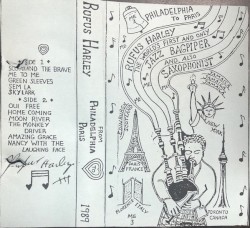 • SIDE 1 •
THE BRAVE
ME TO ME
GREEN SLEEVES
SEM LA
SKYLARK
• SIDE 2 •
OUI FREE
HOME COMING
MOON RIVER
THE MONKEY
DRIVER
AMAZING GRACE
NANCY WITH THE
LAUGHING FACE
Rufus Harley
RUFUS HARLEY
FROM
PHILADELPHIA
TO
PARIS
1989
PHILADELPHIA
TO PARIS
RUFUS HARLEY
WORLD'S FIRST AND ONLY
JAZZ BAGPIPER
AND ALTO
SAXOPHONIST
NEW YORK
PARIS
FRANCE
ITALY
MG
3
TORONTO
CANADA